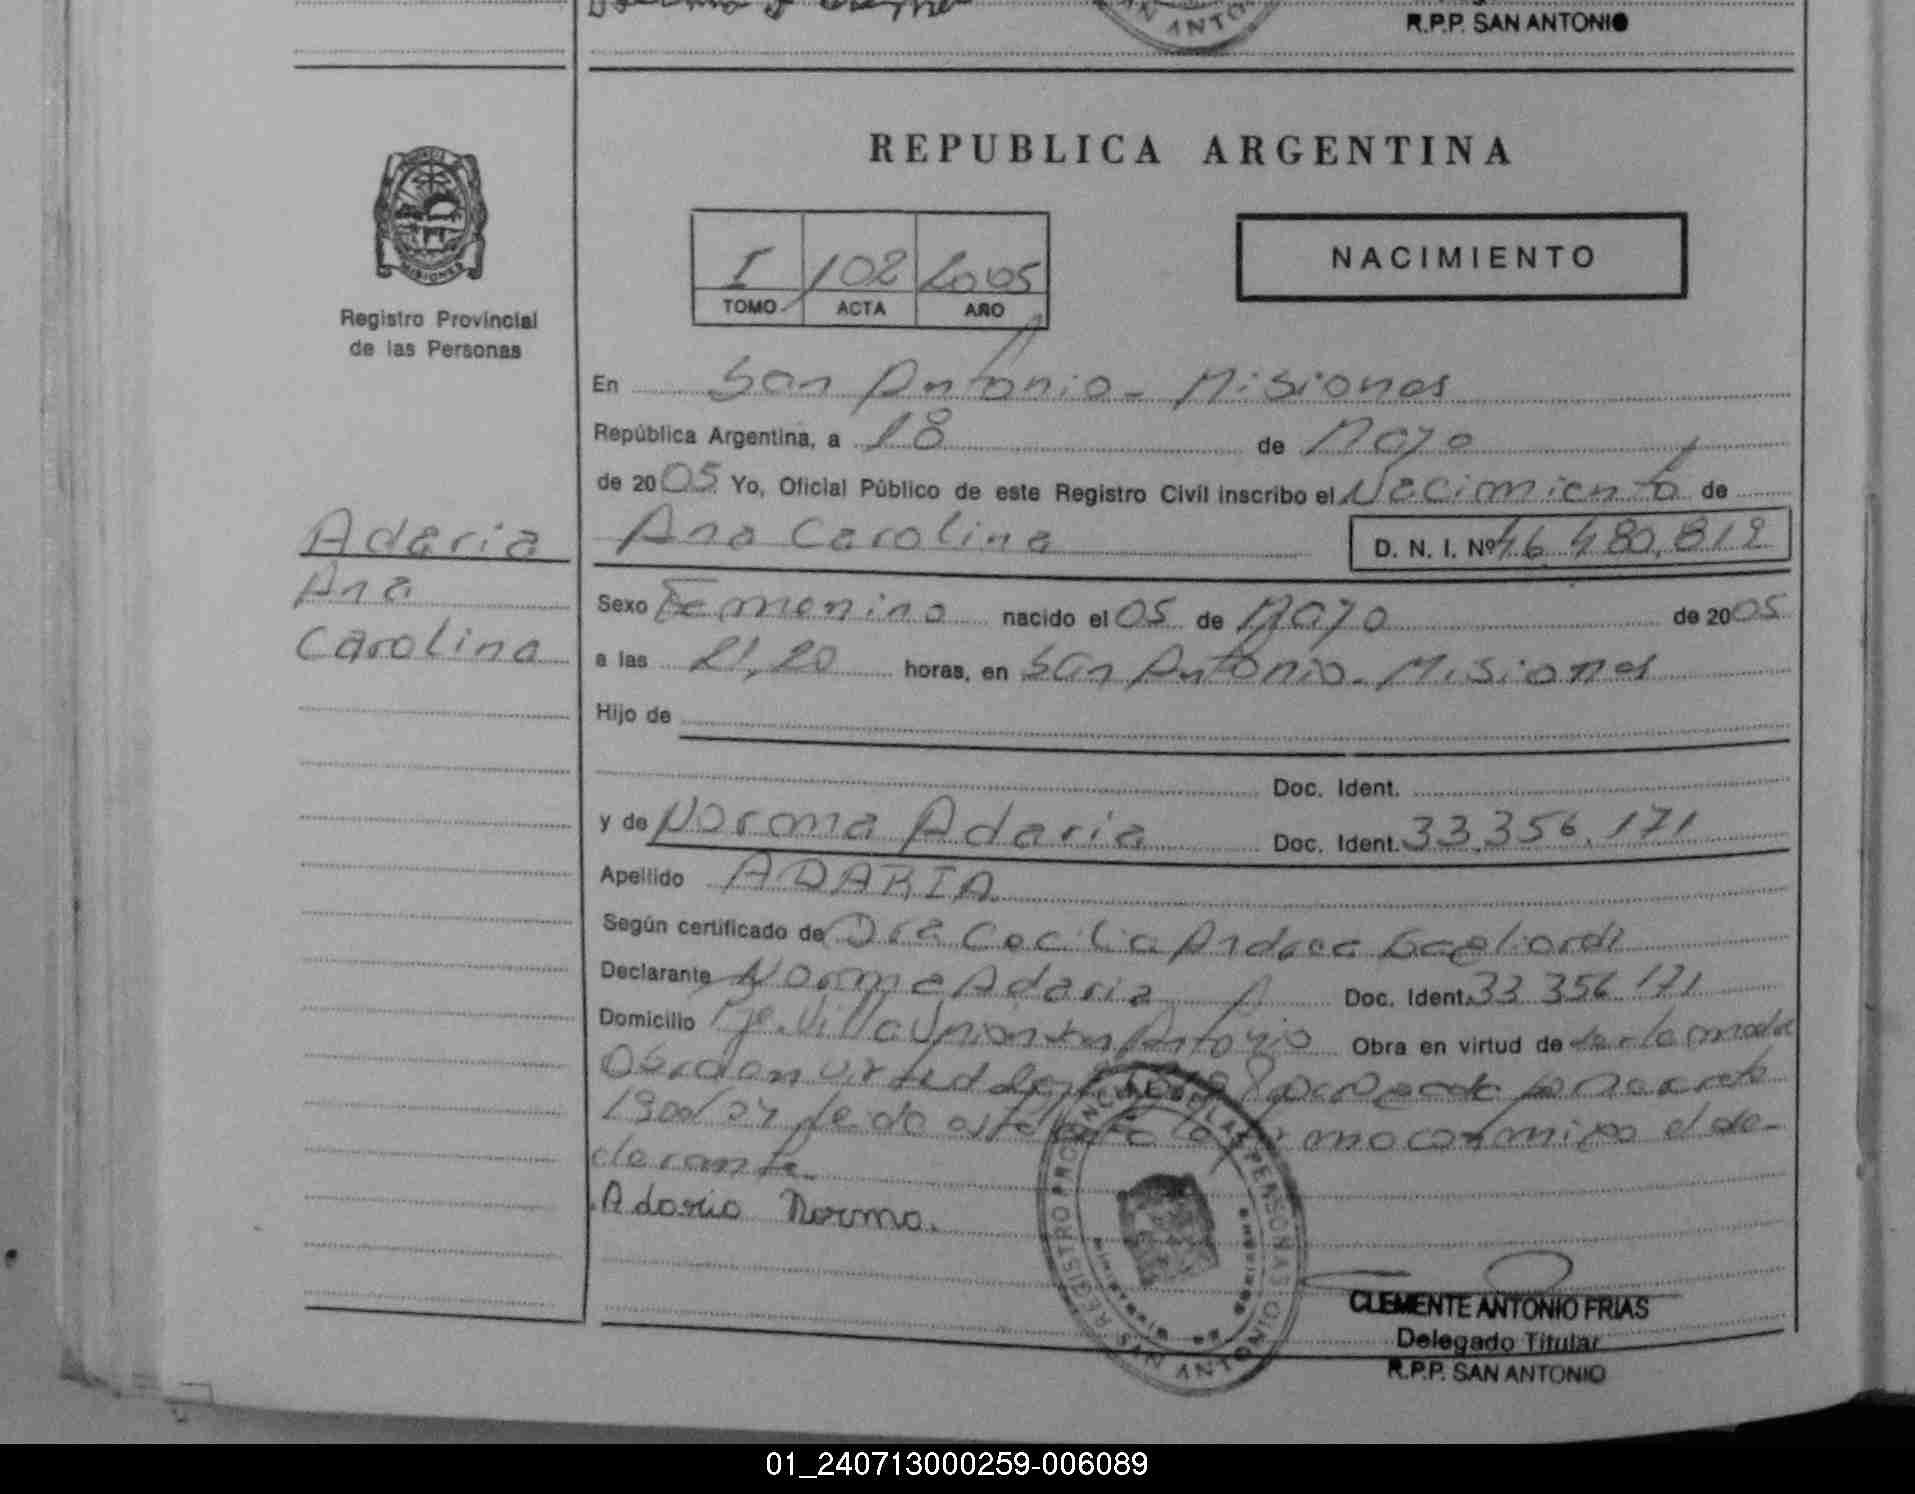 R.P.P. SAN ANTONIO
SAN ANTO
REPUBLICA ARGENTINA
MISIONES
Registro Provincial
de las Personas
I 102 2005
TOMO ACTA AÑO
NACIMIENTO
En San Antonio - Misiones
República Argentina, a 18 de Mayo
de 2005 Yo, Oficial Público de este Registro Civil inscribo el Nacimiento de
Adaria
Ana Carolina D. N. I. Nº 46.480.812
Ana
Carolina
Sexo Femenino nacido el 05 de Mayo de 2005
a las 21,20 horas, en San Antonio - Misiones
Hijo de
Doc. Ident.
y de Norma Adaria Doc. Ident. 33.356.171
Apellido ADARIA
Según certificado de Dra Cecilia Andrea Gagliardi
Declarante Norma Adaria Doc. Ident. 33 356 171
Domicilio Pje. Villa Union San Antonio Obra en virtud de ser la madre
Obra en virtud de
1900/04 leido el acta la firmo conmigo el de-
clarante.
Adaria Norma.
REGISTRO PROVINCIAL DE LAS PERSONAS
SAN ANTONIO
CLEMENTE ANTONIO FRIAS
Delegado Titular
R.P.P. SAN ANTONIO
01_240713000259-006089